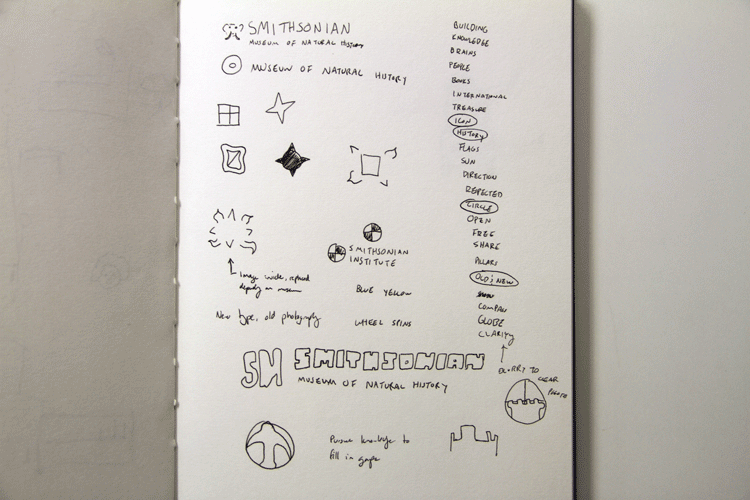 SMITHSONIAN
MUSEUM OF NATURAL HISTORY
MUSEUM OF NATURAL HISTORY
SMITHSONIAN
INSTITUTE
Image inside, replaced
depending on museum
BLUE YELLOW
New type, old photography
WHEEL SPINS
SM SMITHSONIAN
MUSEUM OF NATURAL HISTORY
Pursue knowledge to
fill in gaps
BUILDING
KNOWLEDGE
BRAINS
PEOPLE
BOOKS
INTERNATIONAL
TREASURE
ICON
HISTORY
FLAGS
SUN
DIRECTION
REPECTED
CIRCLE
OPEN
FREE
SHARE
PILLARS
OLD & NEW
COMPASS
GLOBE
CLARITY
BLURRY TO
CLEAR
PHOTO